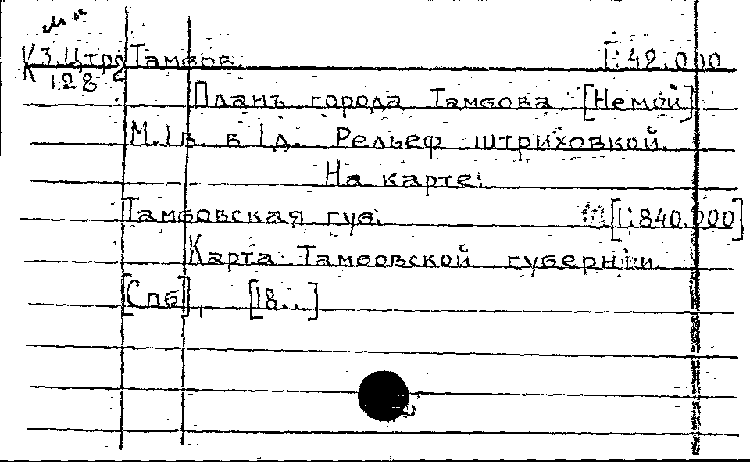 К 3.Цтр8/128 Тамбов. [1:42.000
Планъ города Тамбова [Немой]
М. 1 в. в 1 д. Рельеф штриховкой.
На карте:
Тамбовская губ. [1:840.000]
Карта Тамбовской губернiи.
[Спб], [18..]